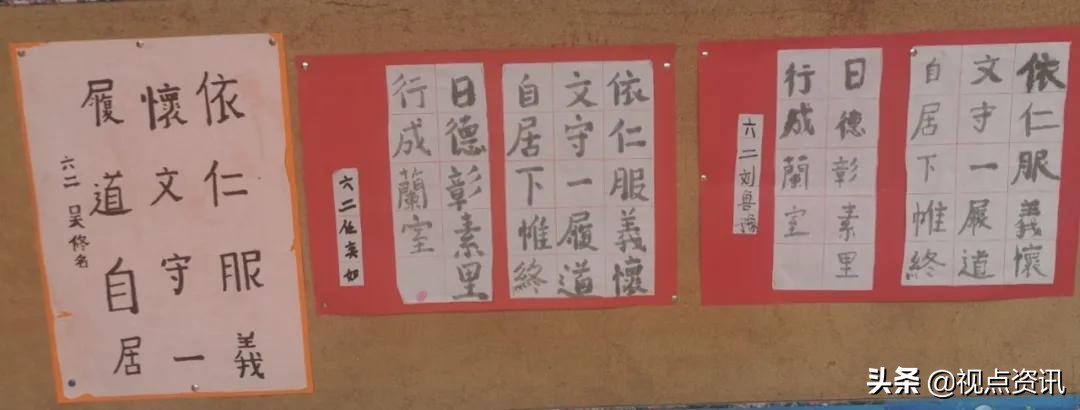 依仁服義
懷文守一
履道自居
六二 吴修名
依仁服義懷
文守一履道
自居下帷終
日德彰素里
行成蘭室
六二任奕如
依仁服義懷
文守一履道
自居下帷終
日德彰素里
行成蘭室
六二刘鲁豫
头条 @视点资讯